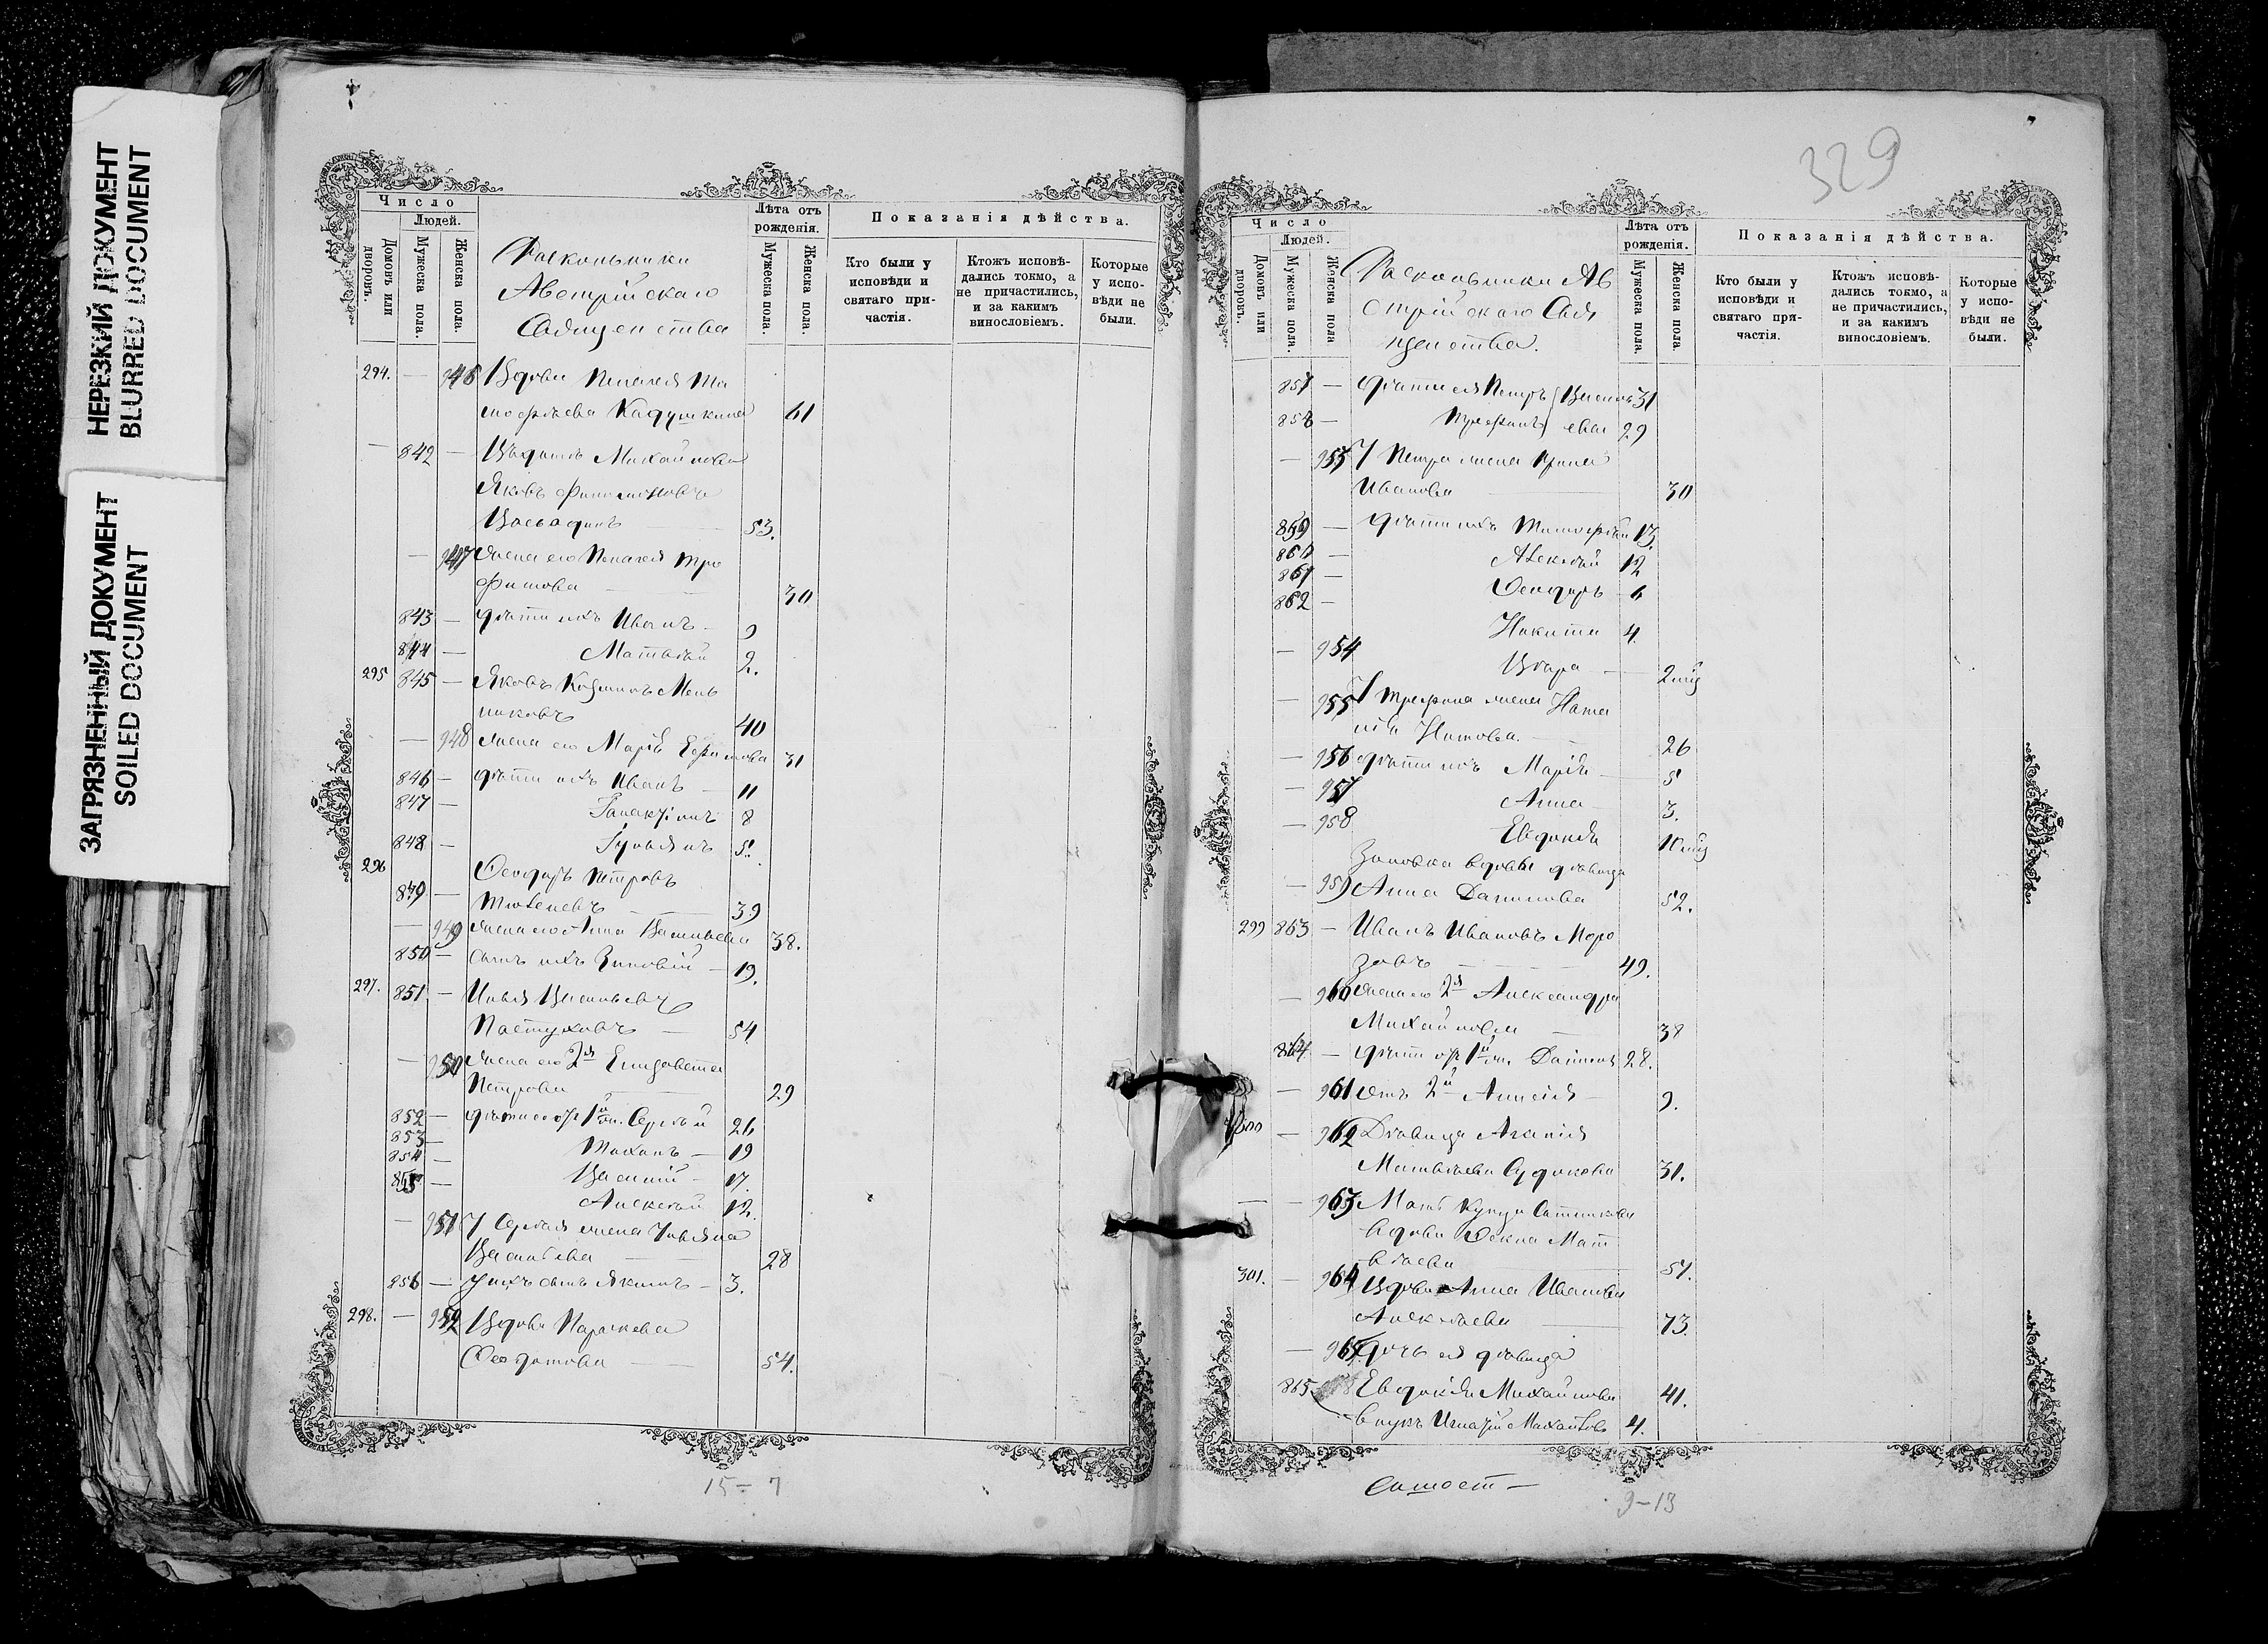 НЕРЕЗКИЙ ДОКУМЕНТ
BLURRED DOCUMENT
ЗАГРЯЗНЕННЫЙ ДОКУМЕНТ
SOILED DOCUMENT
Число
Людей.
Домовъ или дворовъ.
Мужеска пола.
Женска пола.
Раскольники
Австрійскаго
Священства
Лѣта отъ рожденія.
Мужеска пола.
Женска пола.
Показанія дѣйства.
Кто были у исповѣди и святаго причастія.
Ктожъ исповѣдались токмо, а не причастились, и за какимъ винословіемъ.
Которые у исповѣди не были.
294. — 946 Вдова Пелагея Ти
мофѣева Кадушкина 61
— 842 — Вѣдомъ Михайлова
Яковъ Филимоновъ
53.
— 947 жена его Пелагея Тро
фимова — 30
843 — дѣти ихъ Иванъ — 9
844 — Матвѣй 2.
295 845 — Яковъ Козминъ Мель
никовъ 40
— 948 жена его Марія Ефимова 31
846 — дѣти ихъ Иванъ — 11
847 — Галактіонъ 8
848 — Гурьянъ 5.
296 Ѳеодоръ Петровъ
849 — 39
— 949 жена его Анна Васильева 38.
850 — сынъ ихъ Зиновій — 19.
297. 851 — Илья Васильевъ
Пастуховъ — 54
— 950 жена его 2я Елизавета
Петрова 29
852 — дѣти его отъ 1й ж. Сергѣй 26
853 —
854 — Тихонъ — 19
855 — Василій — 17.
Алексѣй 12.
— 951 У Сергѣя жена Ульяна
Васильева — 28
856 — У ихъ сынъ Якимъ — 3.
298. — 952 Вдова Параскева
Ѳедотова — 54.
15 – 7
329
Число
Людей.
Домовъ или дворовъ.
Мужеска пола.
Женска пола
Раскольники Ав
стрійскаго Свя
щенства.
Лѣта отъ рожденія.
Мужеска пола.
Женска пола
Показанія дѣйства.
Кто были у исповѣди и святаго причастія.
Ктожъ исповѣдались токмо, а не причастились, и за какимъ винословіемъ.
Которые у исповѣди не были.
857 — дѣти ея Петръ Василь 31
858 — Трефилъ евы 29
— 953 У Петра жена Ирина
Иванова — 30
859 — дѣти ихъ Тимофѣй 13.
860 — Алексѣй 12
861 — Ѳеодоръ 6
862 — Никита 4.
— 954 Вѣра — 2 мѣ
— 955 У Трефила жена Ната
лія Титова. — 26
— 956 дѣти ихъ Марія — 5
— 957 Анна — 3.
— 958 Евдокія 10 мѣ
Золовка вдовы дѣвица
— 959 Анна Данилова 52.
299 863 — Иванъ Ивановъ Моро
зовъ — 49.
— 960 жена его 2я Александра
Михайлова — 38
864 — дѣти отъ 1й ж. Данилъ 28.
— 961 отъ 2й Анисія — 9.
300 — 962 Дѣвица Агапія
Матвѣева Судакова 31.
— — 963 Мать Купца Ситникова
вдова Ѳекла Мат
вѣева — 57.
301. — 964 Вдова Анна Иванова
Алексѣева — 73.
— 965 дочь ея дѣвица
865 Евдокія Михайлова 41.
внукъ Игнатій Михайловъ 4.
9 – 13